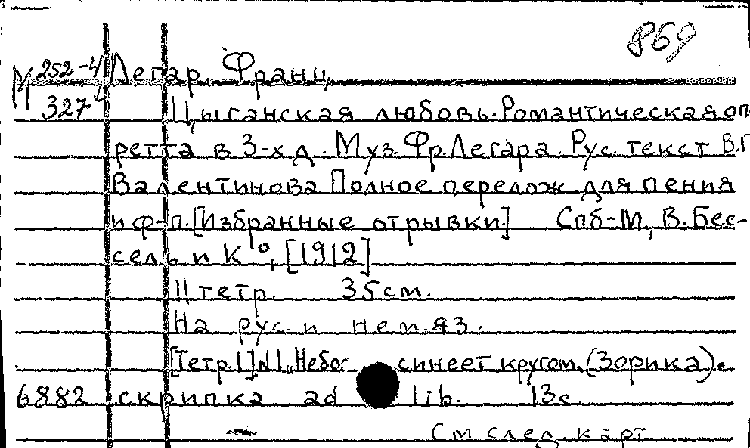 869
М 252-4 Легар, Франц
327 Цыганская любовь. Романтическая оп
ретта в 3-х д. Муз. Фр. Легара. Рус. текст В.П
Валентинова Полное перелож. для пения
и ф-п. [Избранные отрывки] Спб-М, В. Бес-
сель и К°, [1912]
11 тетр. 35 см.
На рус. и нем. яз.
[Тетр. 1] N 1 „Небо синеет кругом. (Зорика).
6882 скрипка ad lib. 13 с.
См след. карт